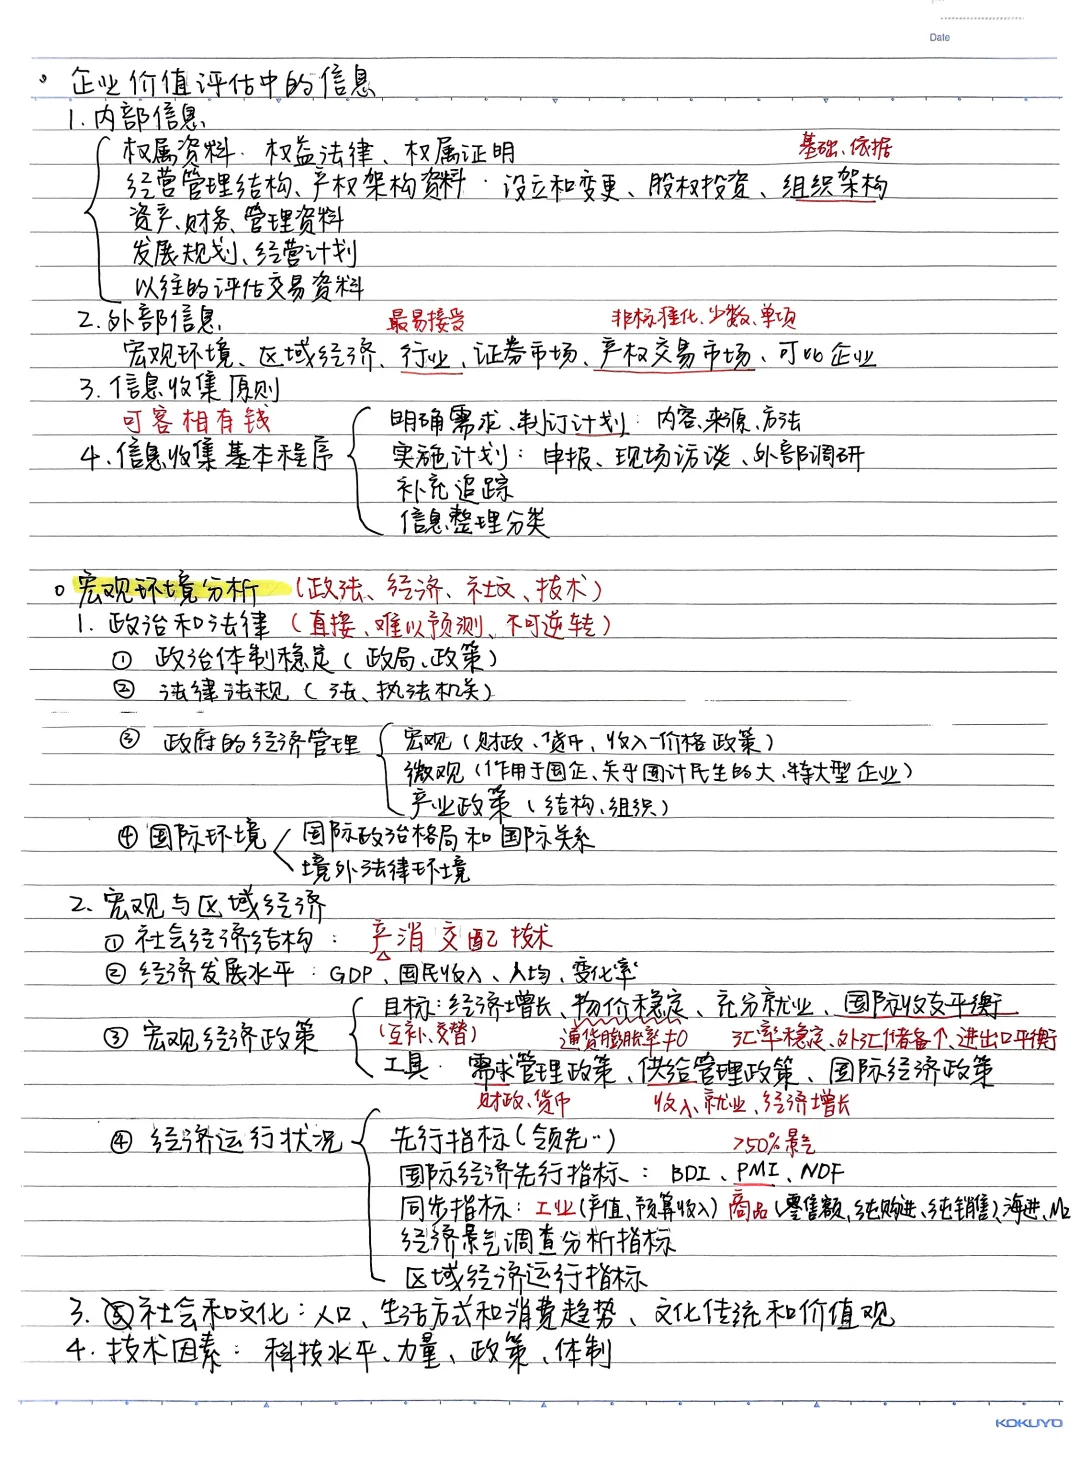 Date
企业价值评估中的信息
1.内部信息
权属资料:权益法律、权属证明
基础、依据
经营管理结构、产权架构资料:设立和变更、股权投资、组织架构
资产、财务、管理资料
发展规划、经营计划
以往的评估交易资料
2.外部信息
最易接受
非标准化、少数、单项
宏观环境、区域经济、行业、证券市场、产权交易市场、可比企业
3.信息收集原则
可客相有钱
4.信息收集基本程序
明确需求、制订计划:内容、来源、方法
实施计划:申报、现场访谈、外部调研
补充追踪
信息整理分类
宏观环境分析(政法、经济、社文、技术)
1.政治和法律(直接、难以预测、不可逆转)
① 政治体制稳定(政局、政策)
② 法律法规(法、执法机关)
③ 政府的经济管理
宏观(财政、货币、收入-价格政策)
微观(作用于国企、关乎国计民生的大、特大型企业)
产业政策(结构、组织)
④ 国际环境
国际政治格局和国际关系
境外法律环境
2.宏观与区域经济
① 社会经济结构:产消交配技术
② 经济发展水平:GDP、国民收入、人均、变化率
③ 宏观经济政策
目标:经济增长、物价稳定、充分就业、国际收支平衡
(互补、交替)
通货膨胀率≠0
汇率稳定、外汇储备个、进出口平衡
工具:需求管理政策、供给管理政策、国际经济政策
财政、货币
收入、就业、经济增长
④ 经济运行状况
先行指标(领先..)
>50%景气
国际经济先行指标:BDI、PMI、NDF
同步指标:工业(产值、预算收入)商品(零售额、纯购进、纯销售)、海进、M2
经济景气调查分析指标
区域经济运行指标
3.社会和文化:人口、生活方式和消费趋势、文化传统和价值观
4.技术因素:科技水平、力量、政策、体制
KOKUYO